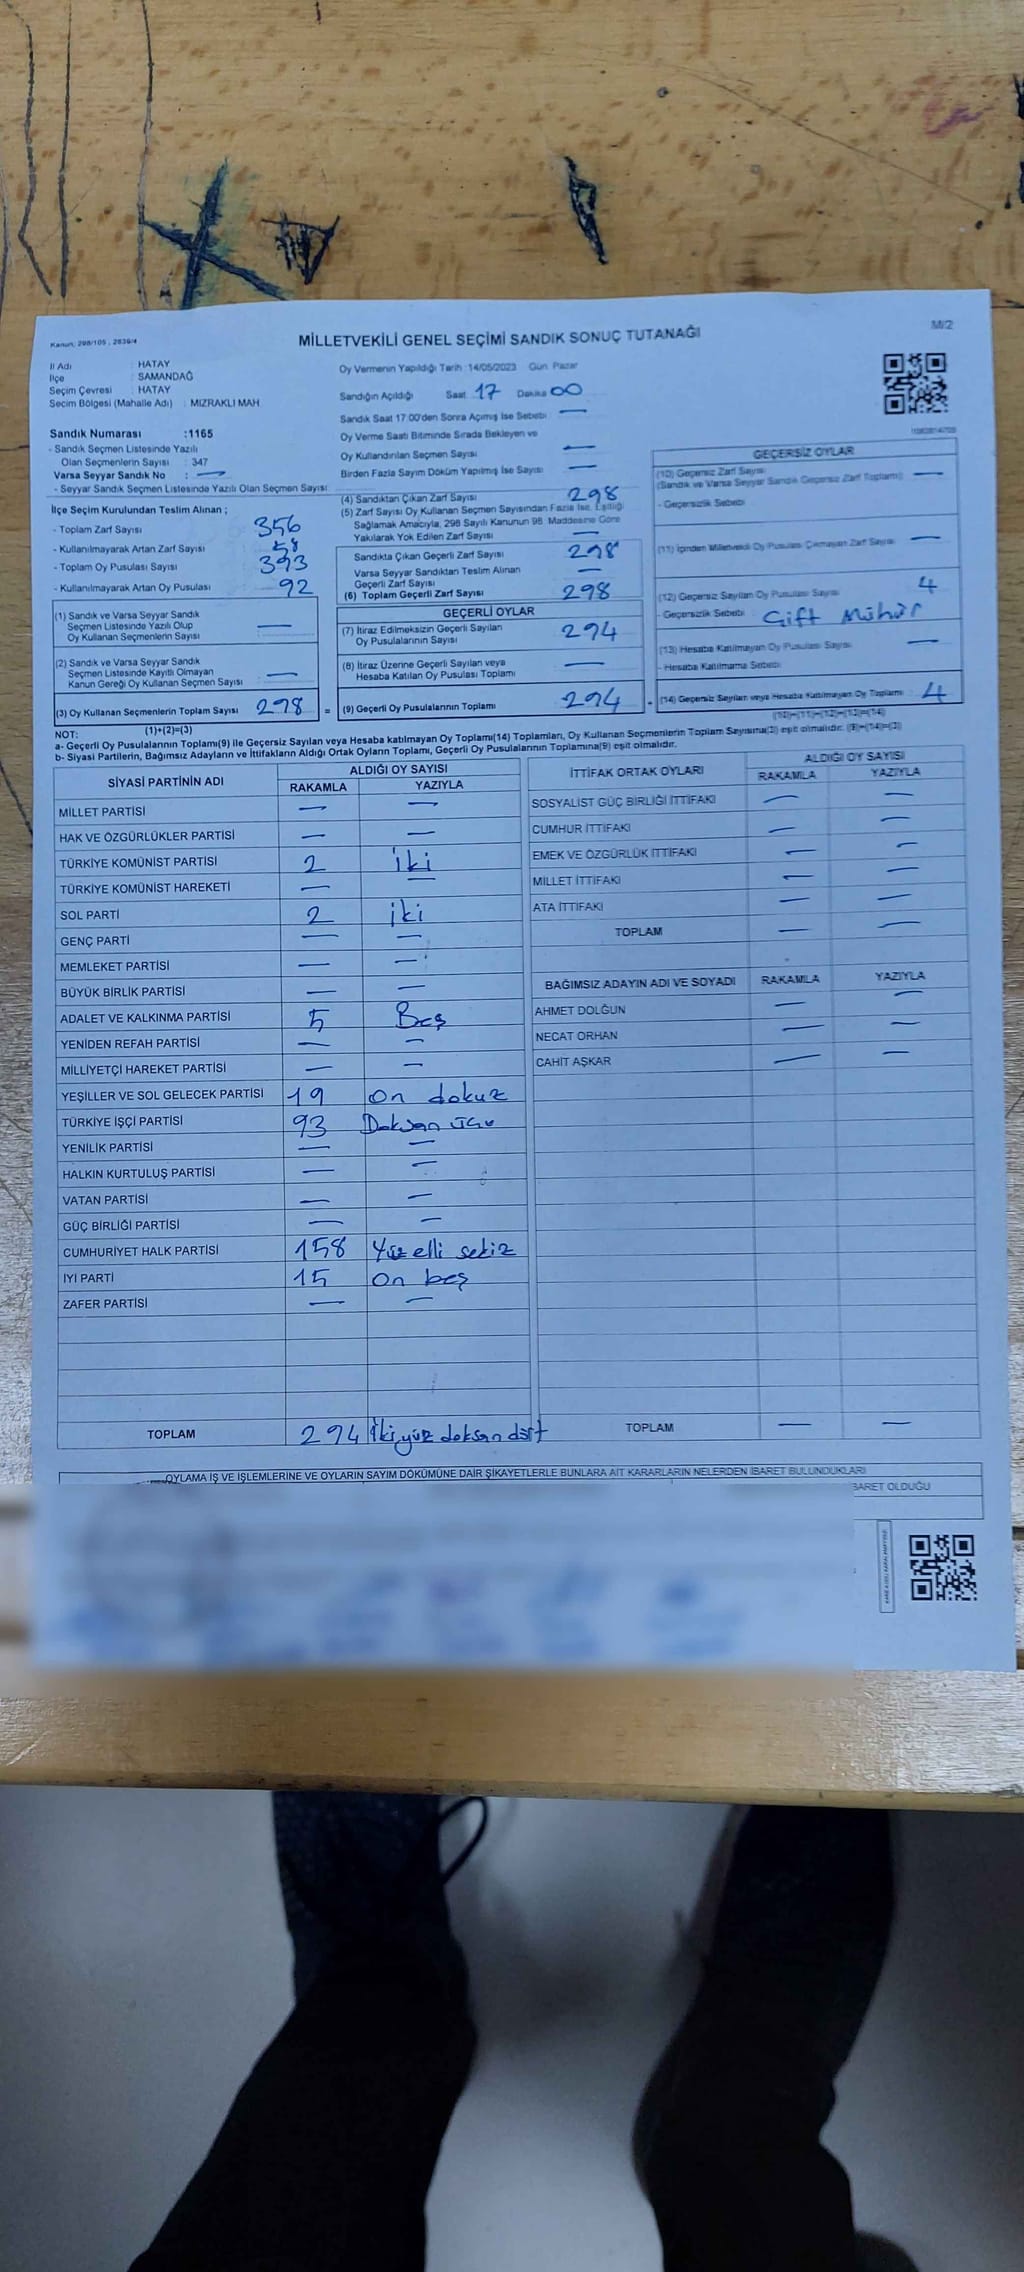 Kanun: 298/105 , 2839/4
MİLLETVEKİLİ GENEL SEÇİMİ SANDIK SONUÇ TUTANAĞI
M/2
İl Adı : HATAY
İlçe : SAMANDAĞ
Seçim Çevresi : HATAY
Seçim Bölgesi (Mahalle Adı) : MIZRAKLI MAH.
Sandık Numarası :1165
- Sandık Seçmen Listesinde Yazılı
Olan Seçmenlerin Sayısı : 347
Varsa Seyyar Sandık No : —
- Seyyar Sandık Seçmen Listesinde Yazılı Olan Seçmen Sayısı
İlçe Seçim Kurulundan Teslim Alınan ;
- Toplam Zarf Sayısı 356
- Kullanılmayarak Artan Zarf Sayısı 58
- Toplam Oy Pusulası Sayısı 393
- Kullanılmayarak Artan Oy Pusulası 92
(1) Sandık ve Varsa Seyyar Sandık
Seçmen Listesinde Yazılı Olup
Oy Kullanan Seçmenlerin Sayısı —
(2) Sandık ve Varsa Seyyar Sandık
Seçmen Listesinde Kayıtlı Olmayan
Kanun Gereği Oy Kullanan Seçmen Sayısı : —
(3) Oy Kullanan Seçmenlerin Toplam Sayısı 298
(1)+(2)=(3)
Oy Vermenin Yapıldığı Tarih :14/05/2023 Gün: Pazar
Sandığın Açıldığı Saat 17 Dakika 00
Sandık Saat 17.00'den Sonra Açılmış İse Sebebi —
Oy Verme Saati Bitiminde Sırada Bekleyen ve
Oy Kullandırılan Seçmen Sayısı —
Birden Fazla Sayım Döküm Yapılmış İse Sayısı —
(4) Sandıktan Çıkan Zarf Sayısı 298
(5) Zarf Sayısı Oy Kullanan Seçmen Sayısından Fazla İse, Eşitliği
Sağlamak Amacıyla, 298 Sayılı Kanunun 98. Maddesine Göre
Yakılarak Yok Edilen Zarf Sayısı —
Sandıkta Çıkan Geçerli Zarf Sayısı 298
Varsa Seyyar Sandıktan Teslim Alınan
Geçerli Zarf Sayısı —
(6) Toplam Geçerli Zarf Sayısı 298
GEÇERLİ OYLAR
(7) İtiraz Edilmeksizin Geçerli Sayılan
Oy Pusulalarının Sayısı 294
(8) İtiraz Üzerine Geçerli Sayılan veya
Hesaba Katılan Oy Pusulası Toplamı —
= (9) Geçerli Oy Pusulalarının Toplamı 294
GEÇERSİZ OYLAR
(10) Geçersiz Zarf Sayısı
(Sandık ve Varsa Seyyar Sandık Geçersiz Zarf Toplamı) —
- Geçersizlik Sebebi
(11) İçinden Milletvekili Oy Pusulası Çıkmayan Zarf Sayısı —
(12) Geçersiz Sayılan Oy Pusulası Sayısı 4
- Geçersizlik Sebebi : Çift Mühür
(13) Hesaba Katılmayan Oy Pusulası Sayısı —
- Hesaba Katılmama Sebebi
(14) Geçersiz Sayılan veya Hesaba Katılmayan Oy Toplamı 4
(10)+(11)+(12)+(13)=(14)
NOT:
a- Geçerli Oy Pusulalarının Toplamı(9) ile Geçersiz Sayılan veya Hesaba katılmayan Oy Toplamı(14) Toplamları, Oy Kullanan Seçmenlerin Toplam Sayısına(3) eşit olmalıdır. (9)+(14)=(3)
b- Siyasi Partilerin, Bağımsız Adayların ve İttifakların Aldığı Ortak Oyların Toplamı, Geçerli Oy Pusulalarının Toplamına(9) eşit olmalıdır.
SİYASİ PARTİNİN ADI ALDIĞI OY SAYISI
RAKAMLA YAZIYLA
MİLLET PARTİSİ — —
HAK VE ÖZGÜRLÜKLER PARTİSİ — —
TÜRKİYE KOMÜNİST PARTİSİ 2 iki
TÜRKİYE KOMÜNİST HAREKETİ — —
SOL PARTİ 2 iki
GENÇ PARTİ — —
MEMLEKET PARTİSİ — —
BÜYÜK BİRLİK PARTİSİ — —
ADALET VE KALKINMA PARTİSİ 5 Beş
YENİDEN REFAH PARTİSİ — —
MİLLİYETÇİ HAREKET PARTİSİ — —
YEŞİLLER VE SOL GELECEK PARTİSİ 19 On dokuz
TÜRKİYE İŞÇİ PARTİSİ 93 Doksan üç
YENİLİK PARTİSİ — —
HALKIN KURTULUŞ PARTİSİ — —
VATAN PARTİSİ — —
GÜÇ BİRLİĞİ PARTİSİ — —
CUMHURİYET HALK PARTİSİ 158 Yüz elli sekiz
İYİ PARTİ 15 On beş
ZAFER PARTİSİ — —
TOPLAM 294 İki yüz doksan dört
İTTİFAK ORTAK OYLARI ALDIĞI OY SAYISI
RAKAMLA YAZIYLA
SOSYALİST GÜÇ BİRLİĞİ İTTİFAKI — —
CUMHUR İTTİFAKI — —
EMEK VE ÖZGÜRLÜK İTTİFAKI — —
MİLLET İTTİFAKI — —
ATA İTTİFAKI — —
TOPLAM — —
BAĞIMSIZ ADAYIN ADI VE SOYADI RAKAMLA YAZIYLA
AHMET DOLĞUN — —
NECAT ORHAN — —
CAHİT AŞKAR — —
TOPLAM — —
OYLAMA İŞ VE İŞLEMLERİNE VE OYLARIN SAYIM DÖKÜMÜNE DAİR ŞİKAYETLERLE BUNLARA AİT KARARLARIN NELERDEN İBARET BULUNDUKLARI
İBARET OLDUĞU